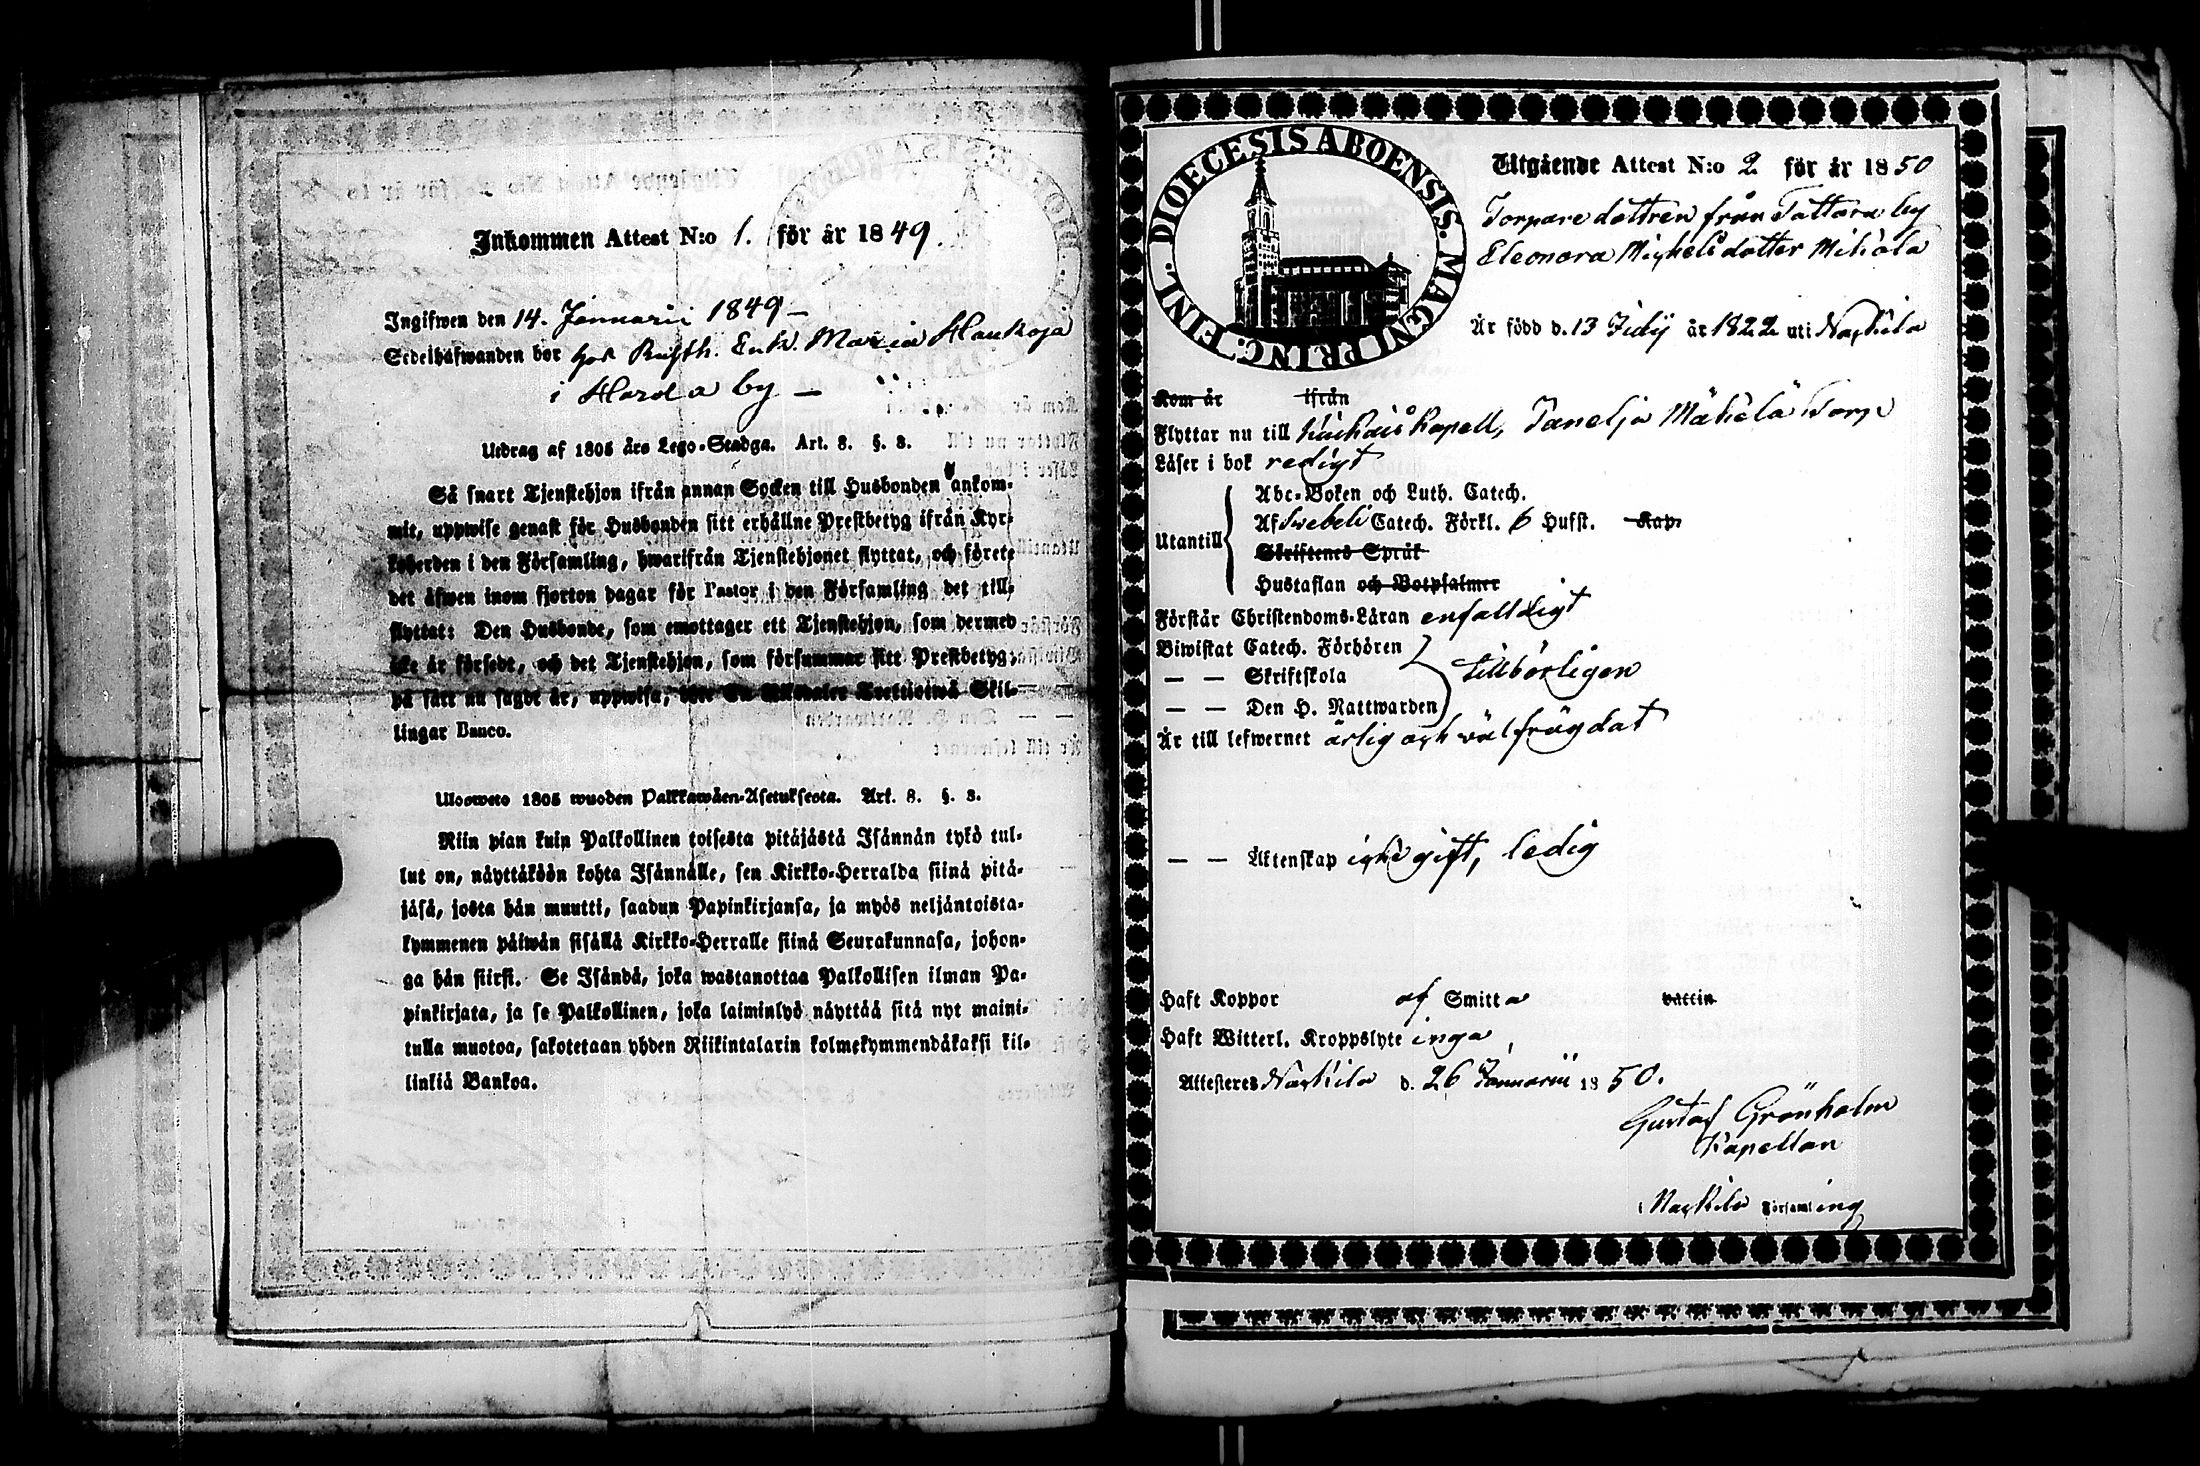 Inkommen Attest N:o 1. för år 1849.
Ingifwen den 14. Januarii 1849 –
Sedelhafwanden bor hos Rusth. Enk. Maria Haukoja
i Harola by –
Utdrag af 1805 års Lego-Stadga. Art. 8. §. 3.
Så snart Tjenstehjon ifrån annan Socken till Husbonden ankom-
mit, uppwise genast för Husbonden sitt erhållne Prestbetyg ifrån Kyr-
koherden i den Församling, hwarifrån Tjenstehjonet flyttat, och förete
det äfwen inom fjorton dagar för Pastor i den Församling det till-
flyttat: Den Husbonde, som emottager ett Tjenstehjon, som dermed
icke är försedt, och det Tjenstehjon, som försummar sitt Prestbetyg
på sätt nu sagdt är, uppwisa, böte En Riksdaler Trettiotwå Skil-
lingar Banco.
Ulosweto 1805 wuoden Palkkawäen-Asetuksesta. Art. 8. §. 3.
Niin pian kuin Palkollinen toisesta pitäjästä Isännän tykö tul-
lut on, näyttäköön kohta Isännälle, sen Kirkko-Herralda siinä pitä-
jäsä, josta hän muutti, saadun Papinkirjansa, ja myös neljäntoista-
kymmenen päiwän sisällä Kirkko-Herralle siinä Seurakunnasa, johon-
ga hän siirsi. Se Isändä, joka wastanottaa Palkollisen ilman Pa-
pinkirjata, ja se Palkollinen, joka laiminlyö näyttää sitä nyt maini-
tulla muotoa, sakotetaan yhden Riikintalarin kolmekymmendäkaksi kil-
linkiä Bankoa.
DIOECESIS ABOENSIS. MAGNI PRINC. FINL.
Utgående Attest N:o 2 för år 1850
Torpare dottren från Tattara by
Eleonora Michelsdotter Mikola
Är född d. 13 Julij år 1822 uti Nackila
Kom år ifrån
Flyttar nu till Kiukais Kapell, Panelia Mäkelä Torp
Läser i bok redigt
Utantill
Abc-Boken och Luth. Catech.
Af Swebeli Catech. Förkl. 6 Hufst. Kap.
Skriftenes Språk
Hustaflan och Botpsalmer
Förstår Christendoms-Läran enfalldigt
Biwistat Catech. Förhören
— — Skriftskola tillbörligen
— — Den H. Nattwarden
Är till lefwernet ärlig och välfrägdat
— — Äktenskap icke gift, ledig
Haft Koppor af Smitta vaccin
Haft Witterl. Kroppslyte inga
Attesteres Nackila d. 26 Januarii 1850.
Gustaf Grönholm
Kapellan
i Nackila Församling